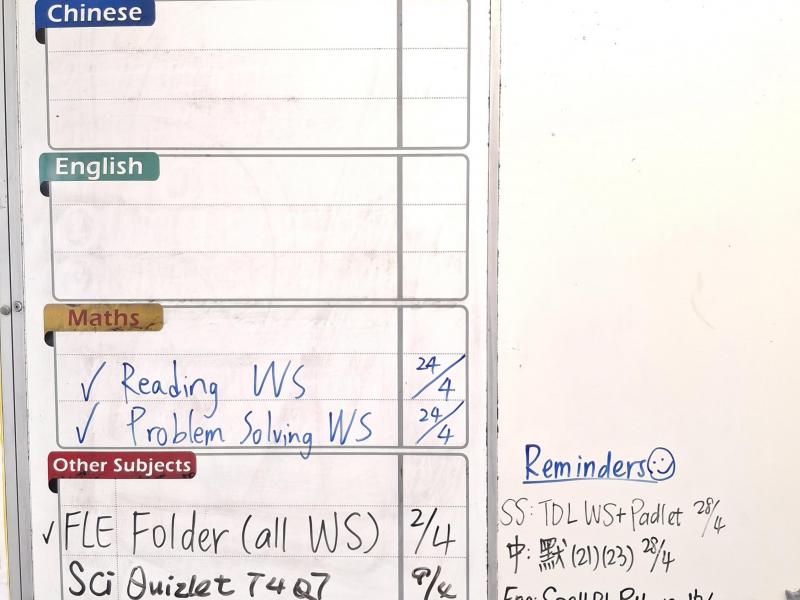 Chinese
English
Maths
✓ Reading WS 24/4
✓ Problem Solving WS 24/4
Other Subjects
✓ FLE Folder (all WS) 2/4
Sci Quizlet T4 Q7 9/4
Reminders
SS: TDL WS + Padlet 28/4
中: 默 (21)(23) 28/4